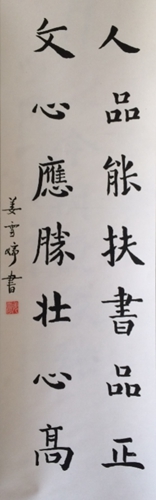 人品能扶書品正
文心應勝壯心高
姜雪晴書